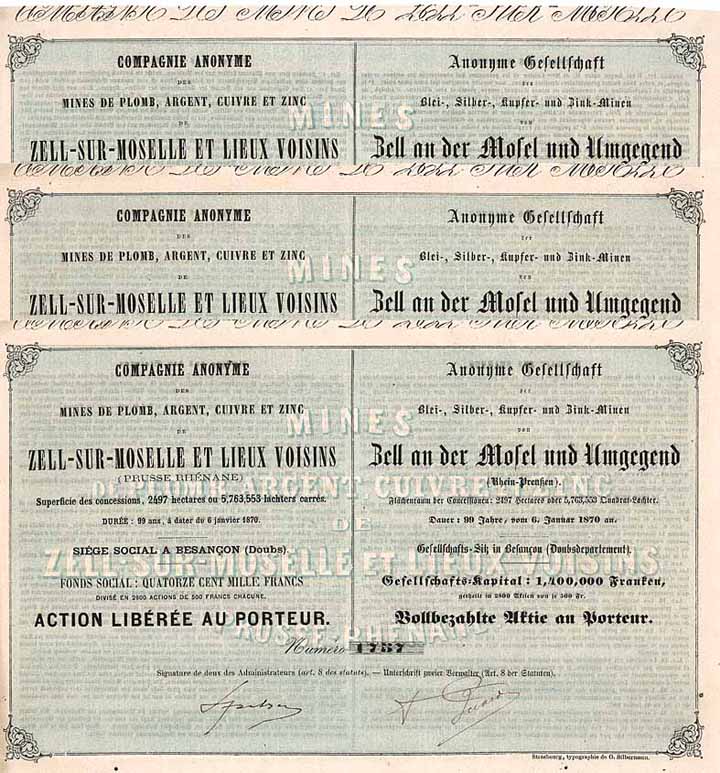 COMPAGNIE ANONYME
DES
MINES DE PLOMB, ARGENT, CUIVRE ET ZINC
DE
ZELL-SUR-MOSELLE ET LIEUX VOISINS
Anonyme Gesellschaft
der
Blei-, Silber-, Kupfer- und Zink-Minen
von
Zell an der Mosel und Umgegend
MINES
COMPAGNIE ANONYME
DES
MINES DE PLOMB, ARGENT, CUIVRE ET ZINC
DE
ZELL-SUR-MOSELLE ET LIEUX VOISINS
Anonyme Gesellschaft
der
Blei-, Silber-, Kupfer- und Zink-Minen
von
Zell an der Mosel und Umgegend
MINES
COMPAGNIE ANONYME
DES
MINES DE PLOMB, ARGENT, CUIVRE ET ZINC
DE
ZELL-SUR-MOSELLE ET LIEUX VOISINS
(PRUSSE RHÉNANE)
Superficie des concessions, 2497 hectares ou 5,763,553 lachters carrés.
DURÉE : 99 ans, à dater du 6 janvier 1870.
SIÈGE SOCIAL A BESANÇON (Doubs).
FONDS SOCIAL : QUATORZE CENT MILLE FRANCS
DIVISÉ EN 2800 ACTIONS DE 500 FRANCS CHACUNE.
ACTION LIBÉRÉE AU PORTEUR.
Anonyme Gesellschaft
der
Blei-, Silber-, Kupfer- und Zink-Minen
von
Zell an der Mosel und Umgegend
(Rhein-Preußen).
Flächenraum der Concessionen: 2497 Hectares oder 5,763,553 Quadrat-Lachter.
Dauer: 99 Jahre, vom 6. Januar 1870 an.
Gesellschafts-Sitz in Besançon (Doubsdepartement).
Gesellschafts-Kapital: 1,400,000 Franken,
getheilt in 2800 Aktien von je 500 Fr.
Vollbezahlte Aktie an Porteur.
MINES
DE PLOMB, ARGENT, CUIVRE ET ZINC
DE
ZELL-SUR-MOSELLE ET LIEUX VOISINS
PRUSSE RHÉNANE
Numéro 1757
Signature de deux des Administrateurs (art. 8 des statuts). — Unterschrift zweier Verwalter (Art. 8 der Statuten).
Strasbourg, typographie de G. Silbermann.